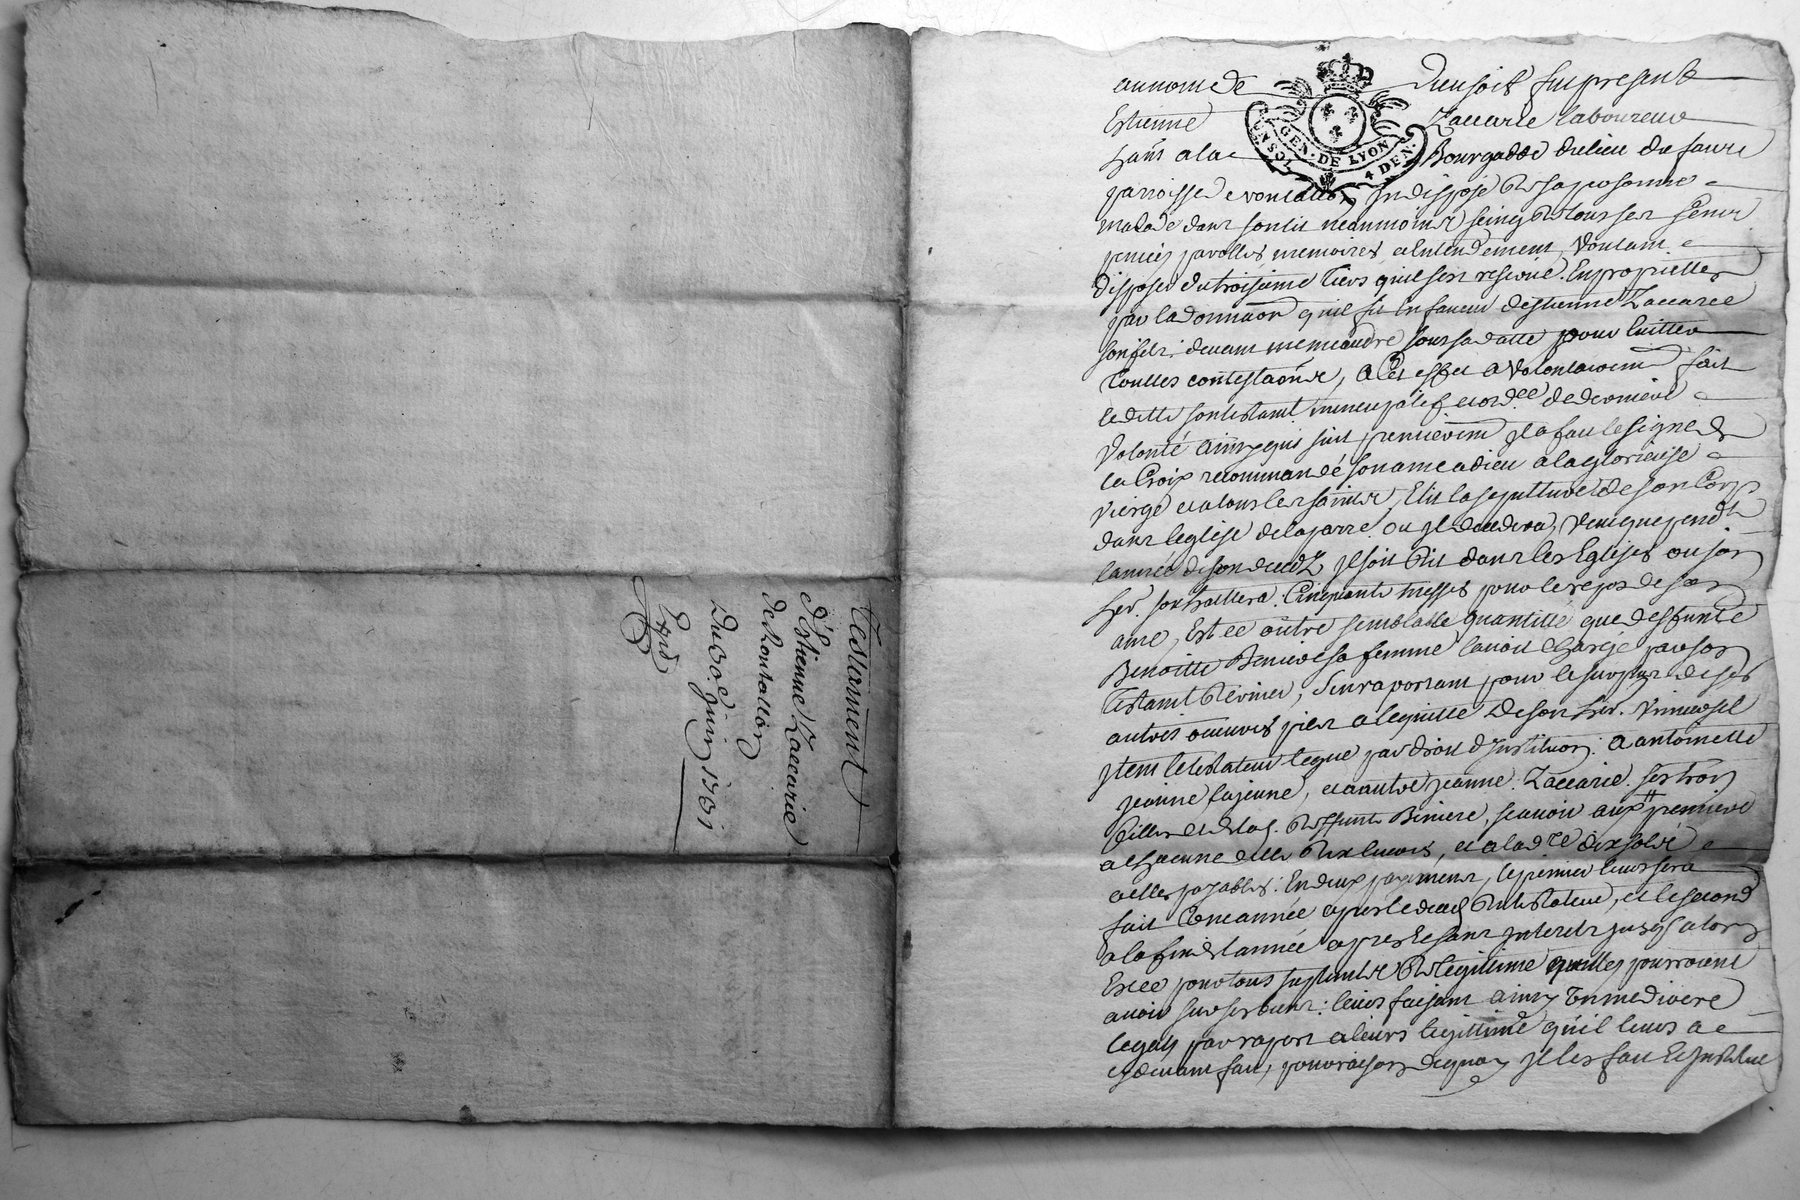 Testament
d'Estienne Zaccarie
de Rontallon
Du 30e Juin 1701
Expé
au nom de Dieu soit fut present
Estienne Zaccarie laboureur
hañt a la Bourgade du lieu du faure
parroisse Rontallon Indisposé de sa personne
malade dans son lit neanmoins seing de tous ses sens
parolles memoires et entendement, Voulant
disposer du troisieme tiers qu'il s'est reservé En proprietté
par la donnaõn qu'il fit en faveur d'estienne Zaccarie
son fils devant sous sa datte pour Eviter
touttes contestaõns, a Cet effet a Volontairemt fait
le dit son testamt nuncupatif et ordce de derniere
Volonté ainsy qui suit premieremt Jl a fait le signe de
la Croix recommandé son ame a dieu a la glorieuse
Vierge et a tous les saints, Elit la sepulture de son Corps
dans leglise de la parre ou Jl decedera, Veut que pendt
l'année de son deceds Jl soit dit dans les Eglises ou son
her. souhaittera Cinquante messes pour le repos de son
ame, Et ce outre semblable quantitté que deffunte
Benoitte Biniere sa femme l'avoit chargé par son
testamt dernier, s'en raportant pour le surplus de ses
autres oeuvres pies a lequitté de son her. Universel
Jtem le testateur legue par droit d'Institution a antoinette
Jeanne la jeune, et a autre Jeanne Zaccarie ses trois
filles et de lad. deffunte Biniere, scavoir aux premiere
a chacune delle dix livres, et a la dre dix sols
a elles payables En deux payements, le premier leurs sera
fait Une année apres le deceds du testateur, et le second
a la fin de l'année apres Et sans interets jusqs alors
Et ce pour tous supluts de legitime quelles pourroient
avoir sur ses biens: leurs faisant ainsy Un mediocre
legat par raport a leurs legitime qu'il leurs a
cydevant fait, pour raison dequoy Jl les fait Et Institue
GEN. DE LYON
UN SOL
4 DEN.